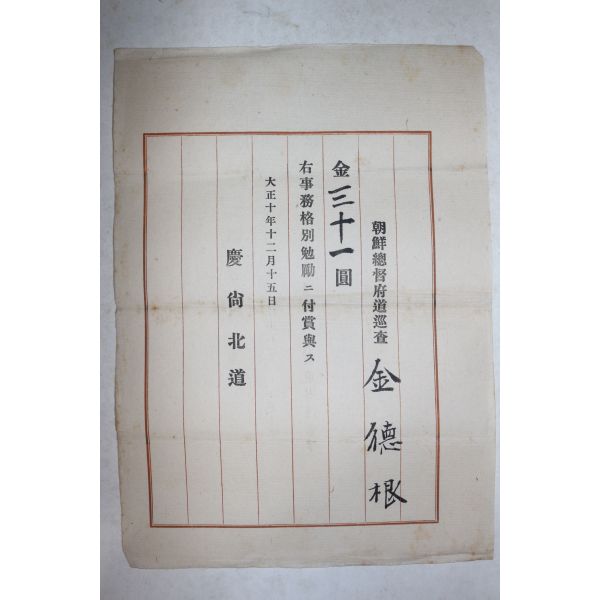 朝鮮總督府道巡査 金德根
金三十一圓
右事務格別勉勵ニ付賞與ス
大正十年十二月十五日
慶尙北道